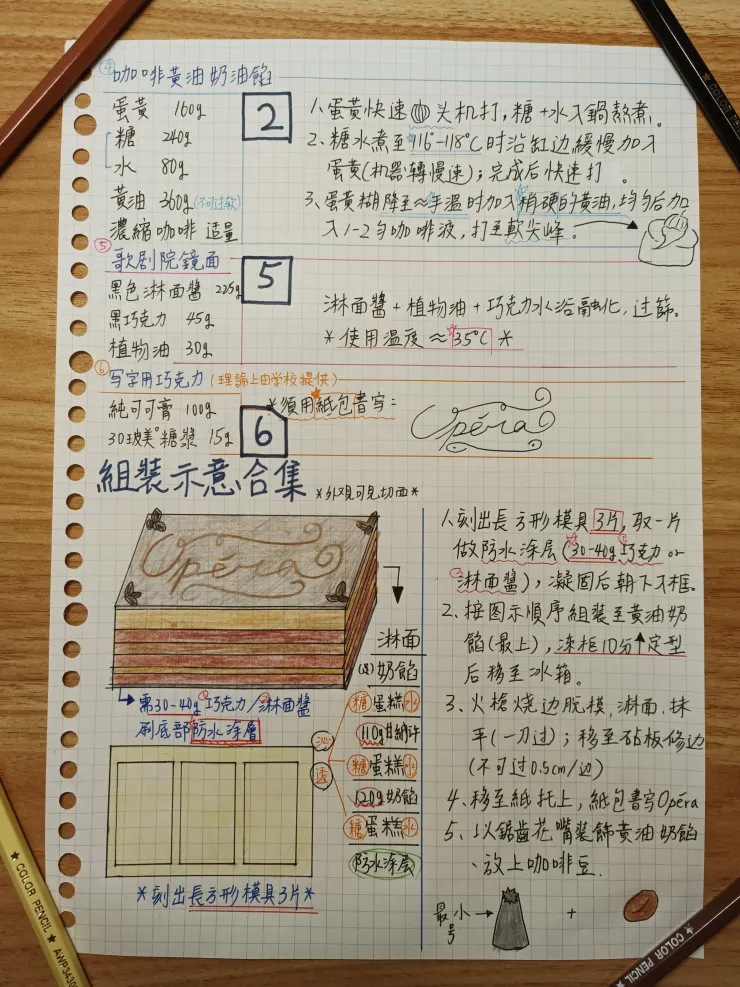 ④ 咖啡黃油奶油餡
蛋黃 160g
糖 240g
水 80g
黃油 360g(不可过软)
濃縮咖啡 适量
2
1、蛋黃快速 头机打,糖+水入鍋熬煮。
2、糖水煮至116°-118°C时沿缸边緩慢加入
蛋黃(机器轉慢速);完成后快速打。
3、蛋黃糊降至≈手温时加入稍硬的黃油,均匀后加
入1-2勺咖啡液,打至軟尖峰。
⑤ 歌剧院鏡面
黑色淋面醬 225g
黑巧克力 45g
植物油 30g
5
淋面醬+植物油+巧克力水浴融化,过篩。
*使用温度≈35°C*
⑥ 写字用巧克力(理論上由学校提供)
純可可膏 100g
30玻美°糖漿 15g
6
*須用紙包書写:
Opéra
組裝示意合集 *外观可見切面*
Opéra
需30-40g巧克力/淋面醬
刷底部防水涂層
*刻出長方形模具3片*
淋面
奶餡
糖蛋糕水
110g甘納汁
糖蛋糕水
120g奶餡
糖蛋糕水
防水涂层
沁
透
1、刻出長方形模具3片,取一片
做防水涂层(30-40g巧克力or
淋面醬),凝固后朝下入框。
2、按图示順序組裝至黃油奶
餡(最上),冻柜10分↑定型
后移至冰箱。
3、火槍烧边脱模,淋面,抹
平(一刀过);移至砧板修边
(不可过0.5cm/边)
4、移至紙托上,紙包書写Opéra
5、以鋸齒花嘴裝飾黃油奶餡
、放上咖啡豆.
最小号 → +
COLOR PENCIL
COLOR PENCIL ★ AWP3430
COLOR PENCIL